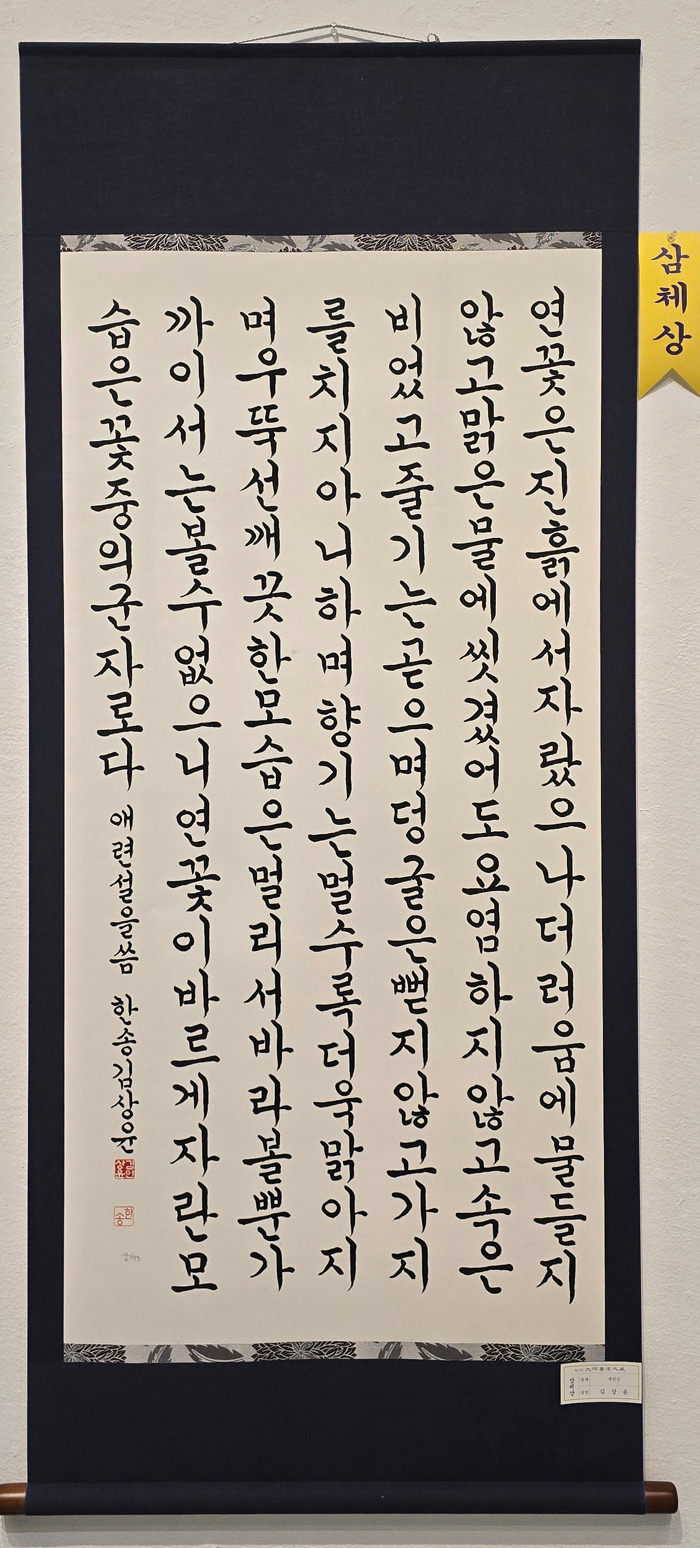 연꽃은진흙에서자랐으나더러움에물들지
않고맑은물에씻겼어도요염하지않고속은
비었고줄기는곧으며덩굴은뻗지않고가지
를치지아니하며향기는멀수록더욱맑아지
며우뚝선깨끗한모습은멀리서바라볼뿐가
까이서는볼수없으니연꽃이바르게자란모
습은꽃중의군자로다
애련설을씀 한송김상윤
한송
삼체상
삼체상
김상윤